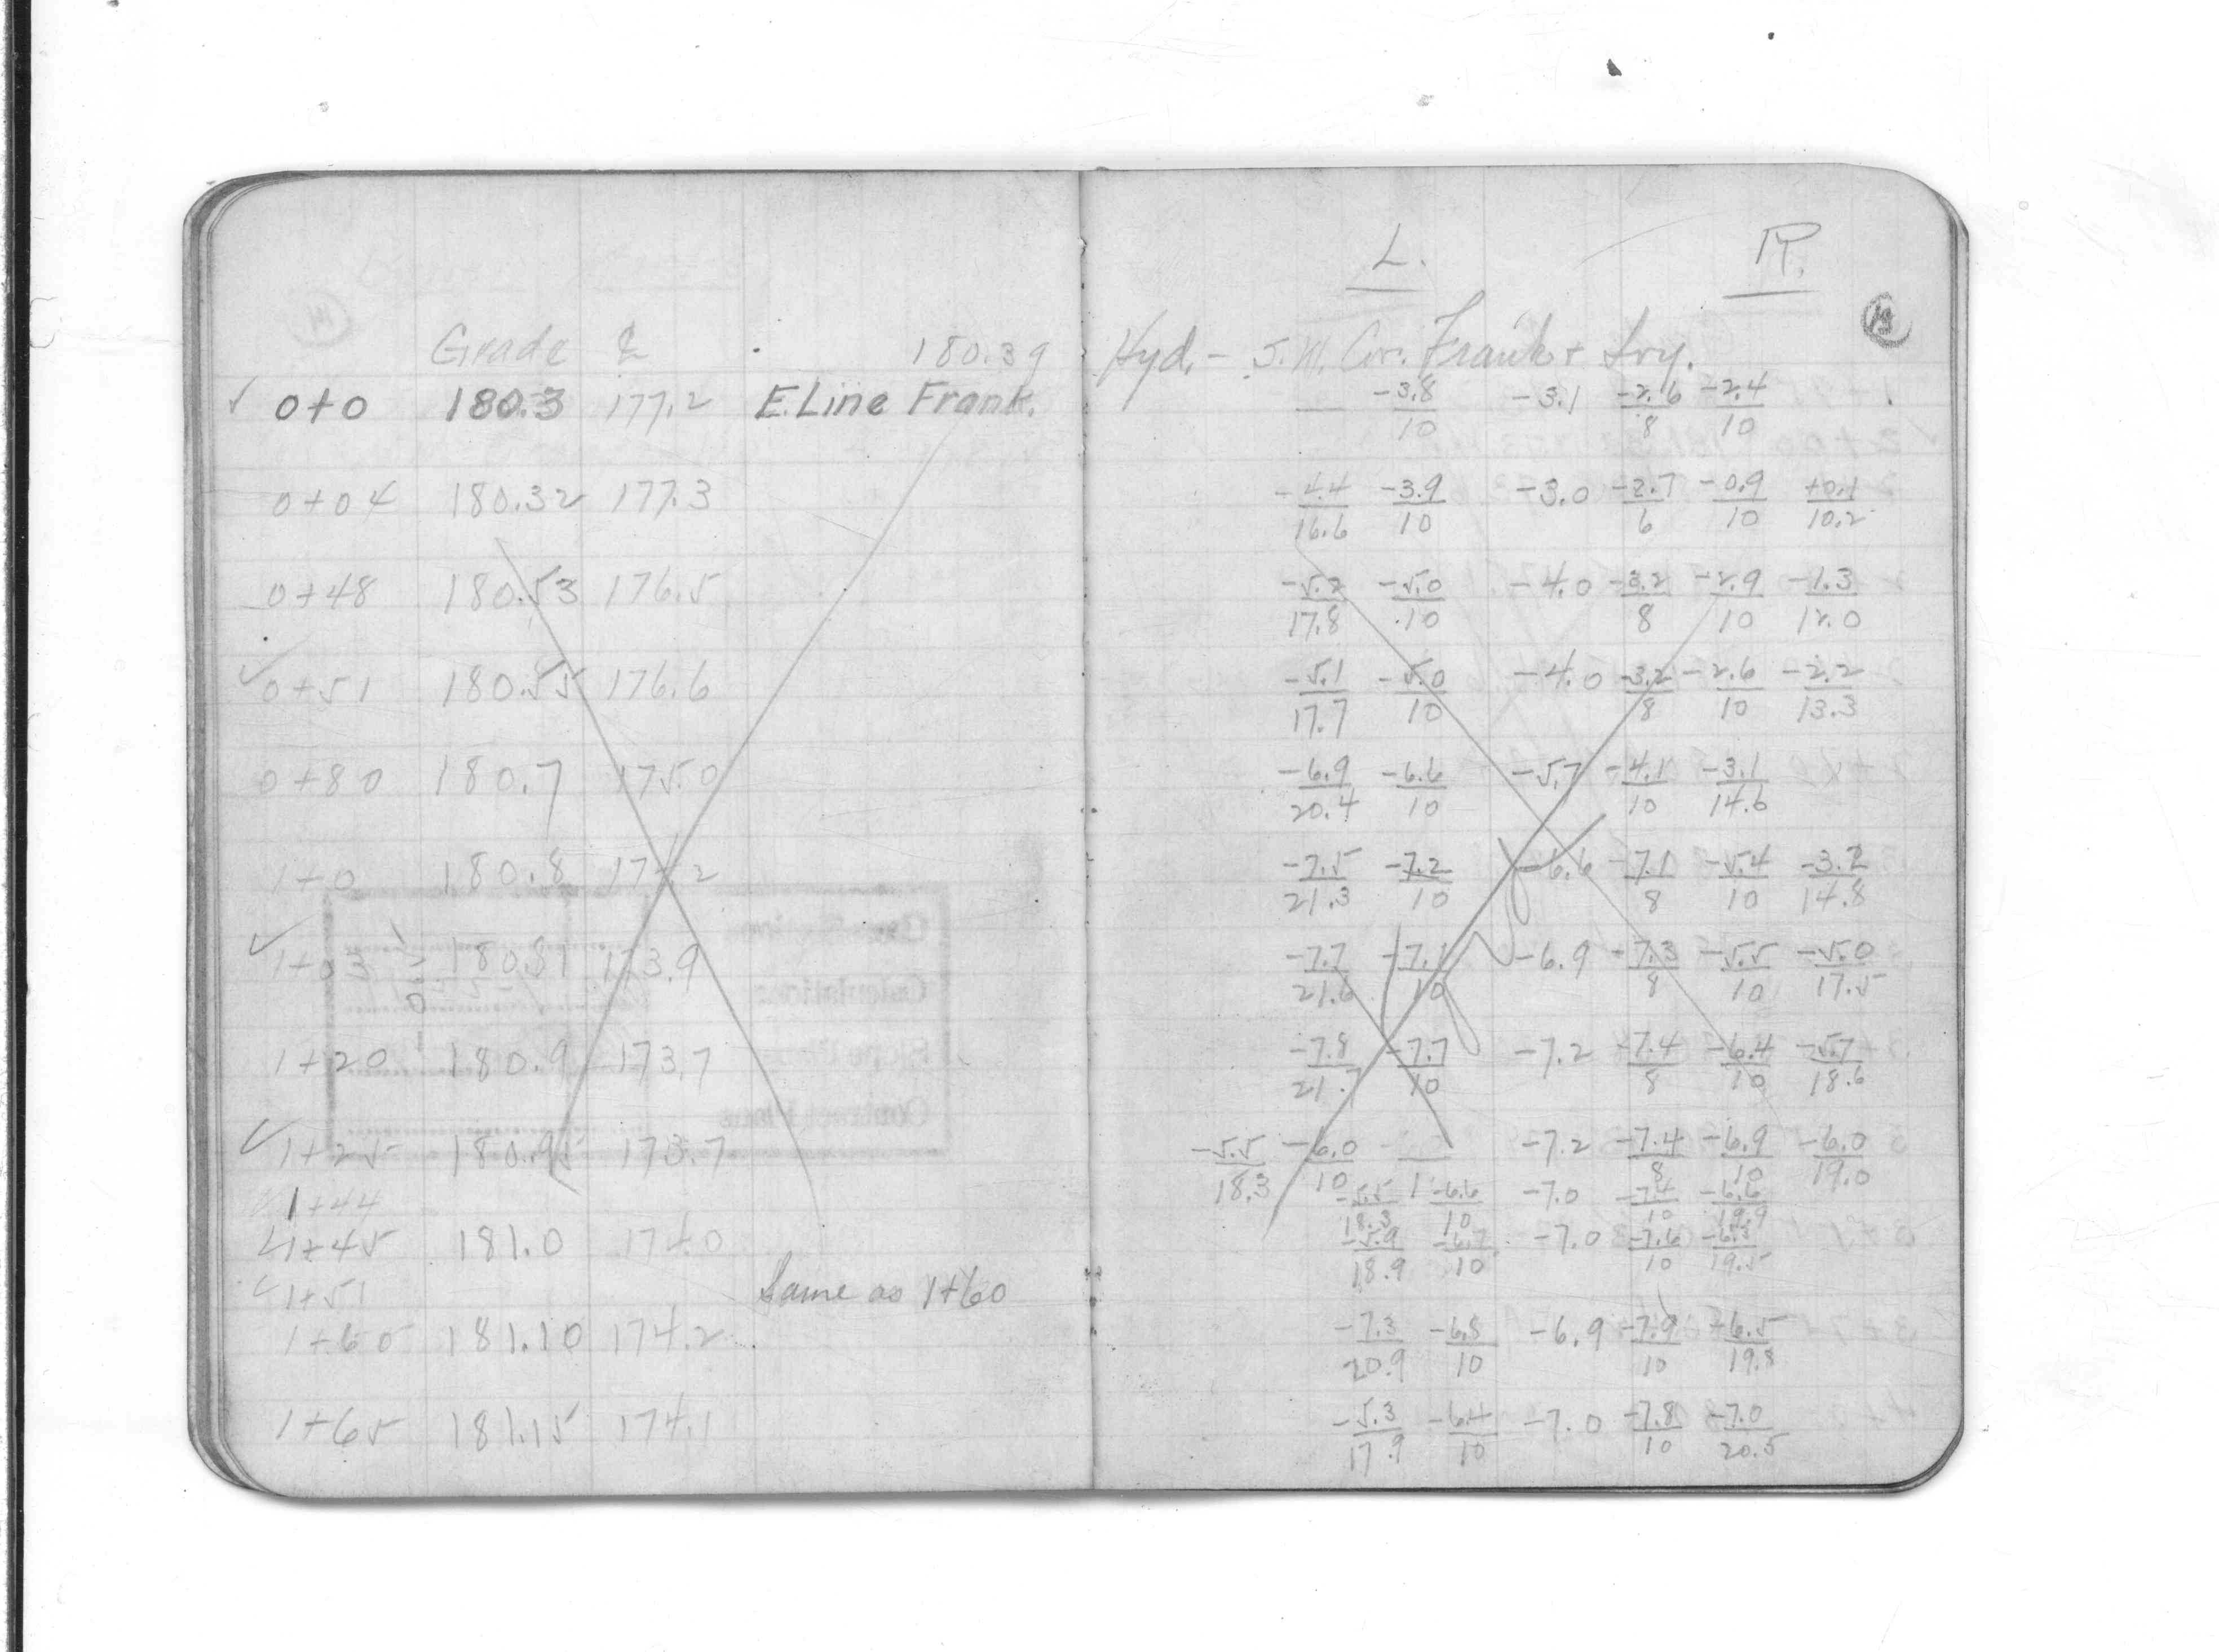 L. R.
Grade ⅊ 180.39 Hyd. - S.W. Cor. Frank + Ivy. 19
✓ 0+0 180.3 177.2 E.Line Frank. -3.8/10 -3.1 -2.6/8 -2.4/10
0+04 180.32 177.3 -4.4/16.6 -3.9/10 -3.0 -2.7/6 -0.9/10 +0.1/10.2
0+48 180.53 176.5 -5.2/17.8 -5.0/10 -4.0 -3.2/8 -2.9/10 -1.3/12.0
✓ 0+51 180.55 176.6 -5.1/17.7 -5.0/10 -4.0 -3.2/8 -2.6/10 -2.2/13.3
0+80 180.7 175.0 -6.9/20.4 -6.6/10 -5.7 -4.1/10 -3.1/14.6
1+0 180.8 174.2 -7.5/21.3 -7.2/10 -6.6 -7.1/8 -5.4/10 -3.2/14.8
✓ 1+03 180.81 173.9 -7.7/21.6 -7.1/10 -6.9 -7.3/8 -5.5/10 -5.0/17.5
1+20 180.9 173.7 -7.8/21.7 -7.7/10 -7.2 -7.4/8 -6.4/10 -5.7/18.6
✓ 1+25 180.95 173.7 -5.5/18.3 -6.0/10 -7.2 -7.4/8 -6.9/10 -6.0/19.0
1+44 -5.5/18.3 -6.6/10 -7.0 -7.4/10 -6.6/19.9
1+45 181.0 174.0 -5.9/18.9 -6.7/10 -7.0 -7.6/10 -6.3/19.5
✓ 1+51 Same as 1+60
1+60 181.10 174.2 -7.3/20.9 -6.8/10 -6.9 -7.9/10 -6.5/19.8
1+65 181.15 174.1 -5.3/17.9 -6.4/10 -7.0 -7.8/10 -7.0/20.5